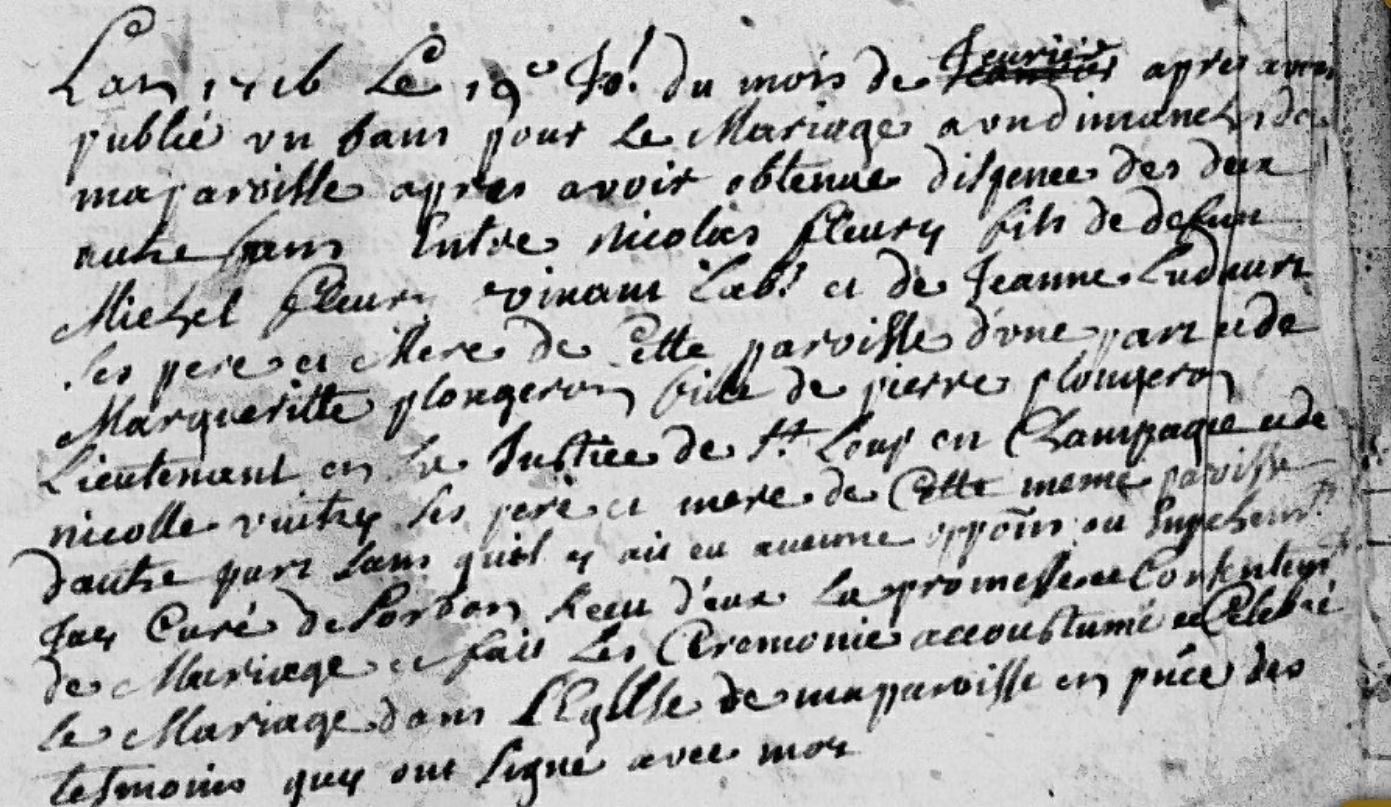 Lan 1716 Le 19e Jo.r du mois de feurier apres avoir
publié vn bans pour Le Mariage avn dimanche de
ma paroisse apres avoir obtenue dispence des deux
autre bans Entre nicolas fleury fils de defun
Michel fleury viuant Lab.r et de Jeanne
ses pere et Mere de Cette paroisse d'vne part et de
Margueritte plongeron fille de pierre plongeron
Lieutenant en La Justice de S.t Loup en Champagne et de
nicolle vuitry ses pere et mere de Cette meme paroisse
dautre part sans quil y ait eu aucune oppõns ou Empeschem.t
Jay Curé de receu d'eux La promesse et Consentem.t
de Mariage et fait Les Ceremonie accoustumé et Celebré
le Mariage dans LEglise de ma paroisse en pñce des
tesmoins quy ont signé avec moy